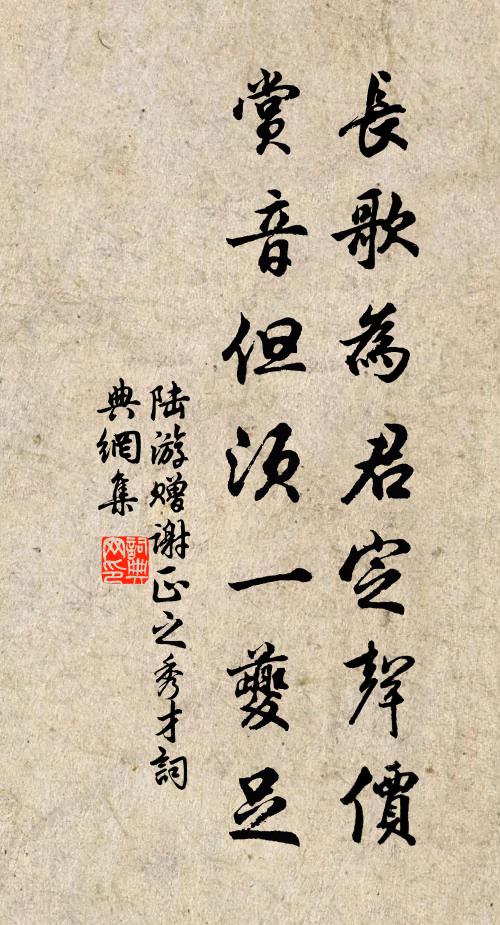 長歌為君定聲價
賞音但須一夔足
陸游贈謝正之秀才詞
典網集
詞典
网印